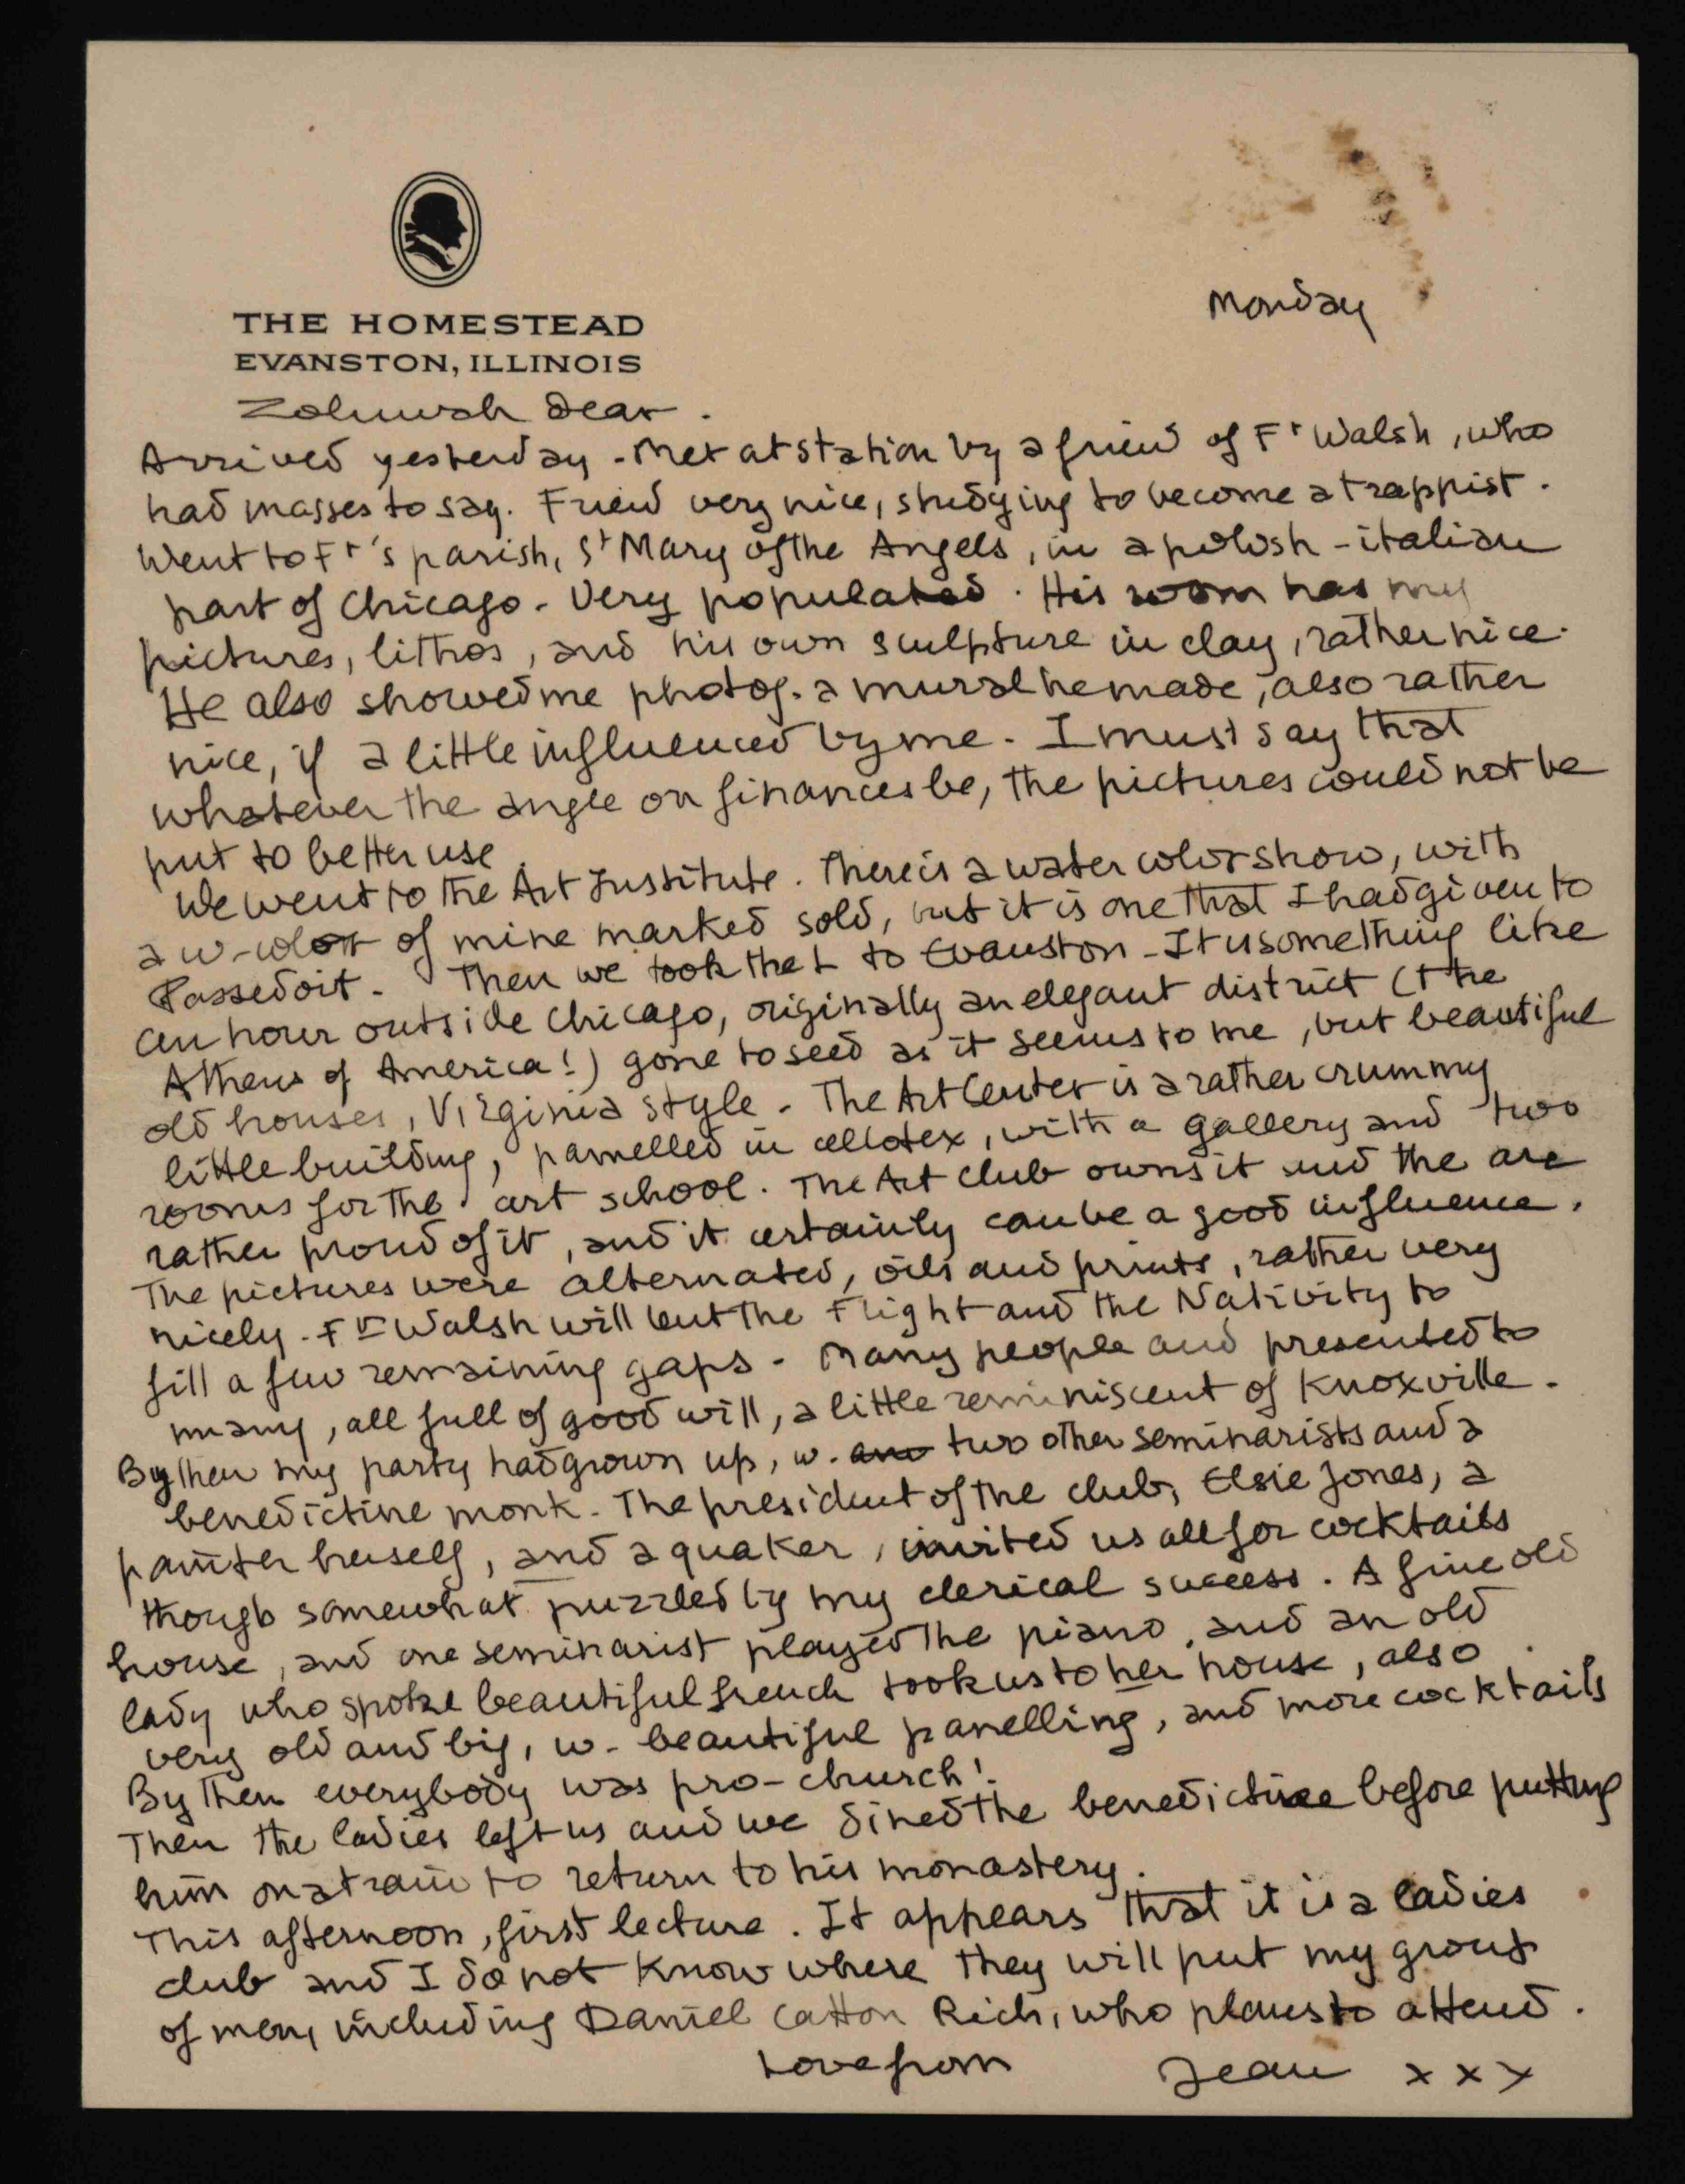 THE HOMESTEAD
EVANSTON, ILLINOIS
Monday
Zohmah dear.
Arrived yesterday - Met at station by a friend of Fr Walsh, who
had masses to say. Friend very nice, studying to become a trappist.
Went to Fr's parish, St Mary of the Angels, in a polish-italian
part of Chicago - Very populated. His room has my
pictures, lithos, and his own sculpture in clay, rather nice.
He also showed me photog. a mural he made, also rather
nice, if a little influenced by me. I must say that
whatever the angle on finances be, the pictures could not be
put to better use.
We went to the Art Institute. There is a water color show, with
a w-color of mine marked sold, but it is one that I had given to
Passedoit - Then we took the L to Evanston - It is something like
an hour outside Chicago, originally an elegant district (the
Athens of America!) gone to seed as it seems to me, but beautiful
old houses, Virginia style - The Art Center is a rather crummy
little building, pannelled in cellotex, with a gallery and two
rooms for the art school. The Art Club owns it and the are
rather proud of it, and it certainly can be a good influence.
The pictures were alternated, oils and prints, rather very
nicely. Fr Walsh will lent the Flight and the Nativity to
fill a few remaining gaps - Many people and presented to
many, all full of good will, a little reminiscent of Knoxville -
By then my party had grown up, w. and two other seminarists and a
benedictine monk. The president of the club, Elsie Jones, a
painter herself, and a quaker, invited us all for cocktails
though somewhat puzzled by my clerical success. A fine old
house, and one seminarist played the piano, and an old
lady who spoke beautiful french took us to her house, also
very old and big, w- beautiful panelling, and more cocktails
By then everybody was pro-church!
Then the ladies left us and we dined the benedictine before putting
him on a train to return to his monastery.
This afternoon, first lecture. It appears that it is a ladies
club and I do not know where they will put my group
of men, including Daniel Catton Rich, who plans to attend.
Love from Jean x x x